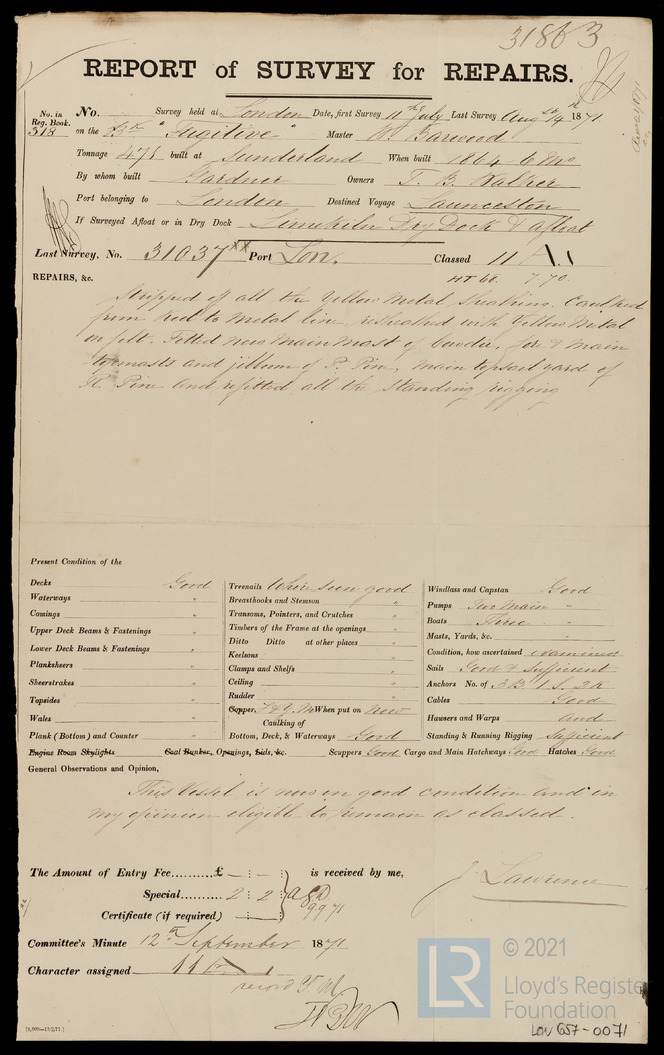 31863
REPORT of SURVEY for REPAIRS.
No. in Reg. Book. No. Survey held at London Date, first Survey 11th July Last Survey Aug 14th 1871
318 on the Bk "Fugitive" Master W. Barwood
Tonnage 471 built at Sunderland When built 1864 - 6 Mo
By whom built Gardner Owners T. B. Walker
Port belonging to London Destined Voyage Launceston
If Surveyed Afloat or in Dry Dock Limekiln Dry Dock & afloat
Last Survey, No. 31037 xx Port Lon. Classed 11 A.1
HT 68. 7.70.
REPAIRS, &c.
Stripped of all the Yellow Metal Sheathing. Caulked
from keel to Metal line, resheathed with Yellow Metal
on felt. Fitted new Main Mast of Cowdie, fore & main
topmasts and jibboom of P. Pine, Main topsail yard of
R. Pine and refitted all the Standing rigging
Present Condition of the
Decks Good
Waterways "
Comings "
Upper Deck Beams & Fastenings "
Lower Deck Beams & Fastenings "
Planksheers "
Sheerstrakes "
Topsides "
Wales "
Plank (Bottom) and Counter "
Engine Room Skylights Coal Bunker, Openings, Lids, &c.
Treenails Where seen good
Breasthooks and Stemson "
Transoms, Pointers, and Crutches "
Timbers of the Frame at the openings "
Ditto Ditto at other places "
Keelsons "
Clamps and Shelfs "
Ceiling "
Rudder "
Copper, Y.M When put on New
Caulking of
Bottom, Deck, & Waterways Good
Windlass and Capstan Good
Pumps Two Main "
Boats Three "
Masts, Yards, &c. "
Condition, how ascertained examined
Sails Good & Sufficient
Anchors No. of 3 B. 1 S. 2 K
Cables Good
Hawsers and Warps and
Standing & Running Rigging Sufficient
Scuppers Good Cargo and Main Hatchways Good Hatches Good
General Observations and Opinion,
This Vessel is now in good condition and in
my opinion eligible to remain as classed.
The Amount of Entry Fee..........£ — : — is received by me,
Special.......... 2 : 2
9 9 71
Certificate (if required) — J Lawrence
Committee's Minute 12th September 1871
Character assigned 11
record Y.M
[4,000—13/2/71.]
LR © 2021
Lloyd's Register
Foundation
LON 657-0071